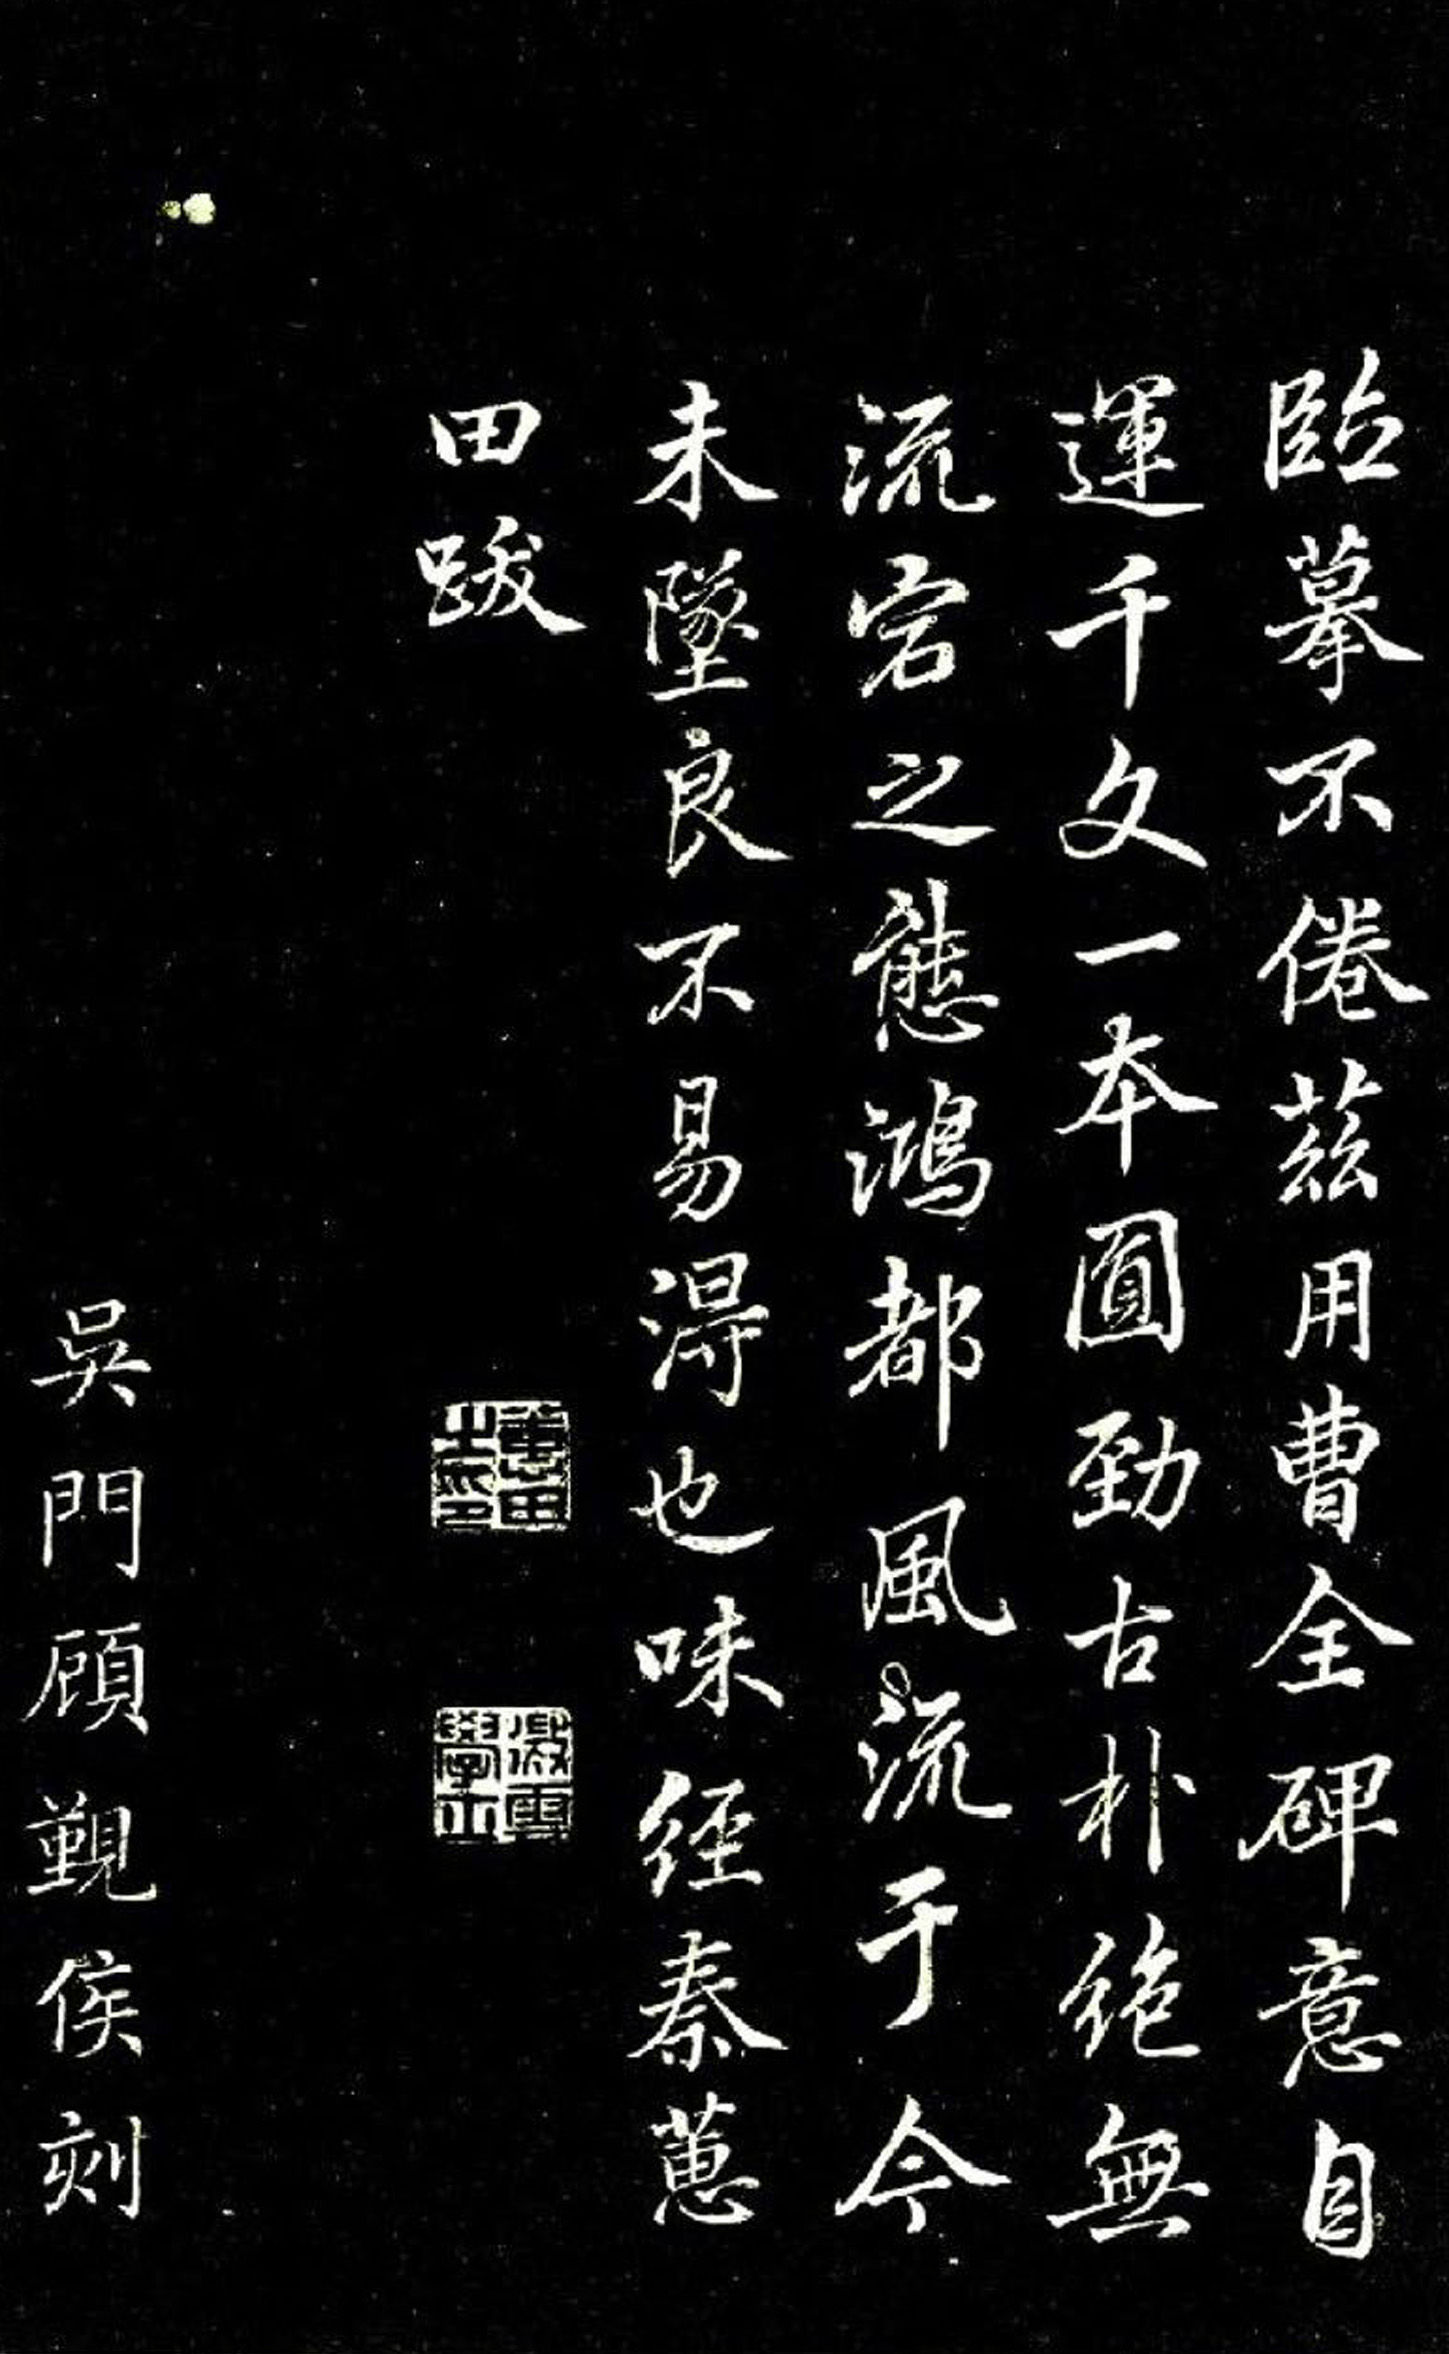 臨摹不倦茲用曹全碑意自
運千文一本圓勁古朴絶無
流宕之態鴻都風流于今
未墜良不易淂也味經秦蕙
田跋
蕙田之印
吳門顧覲侯刻